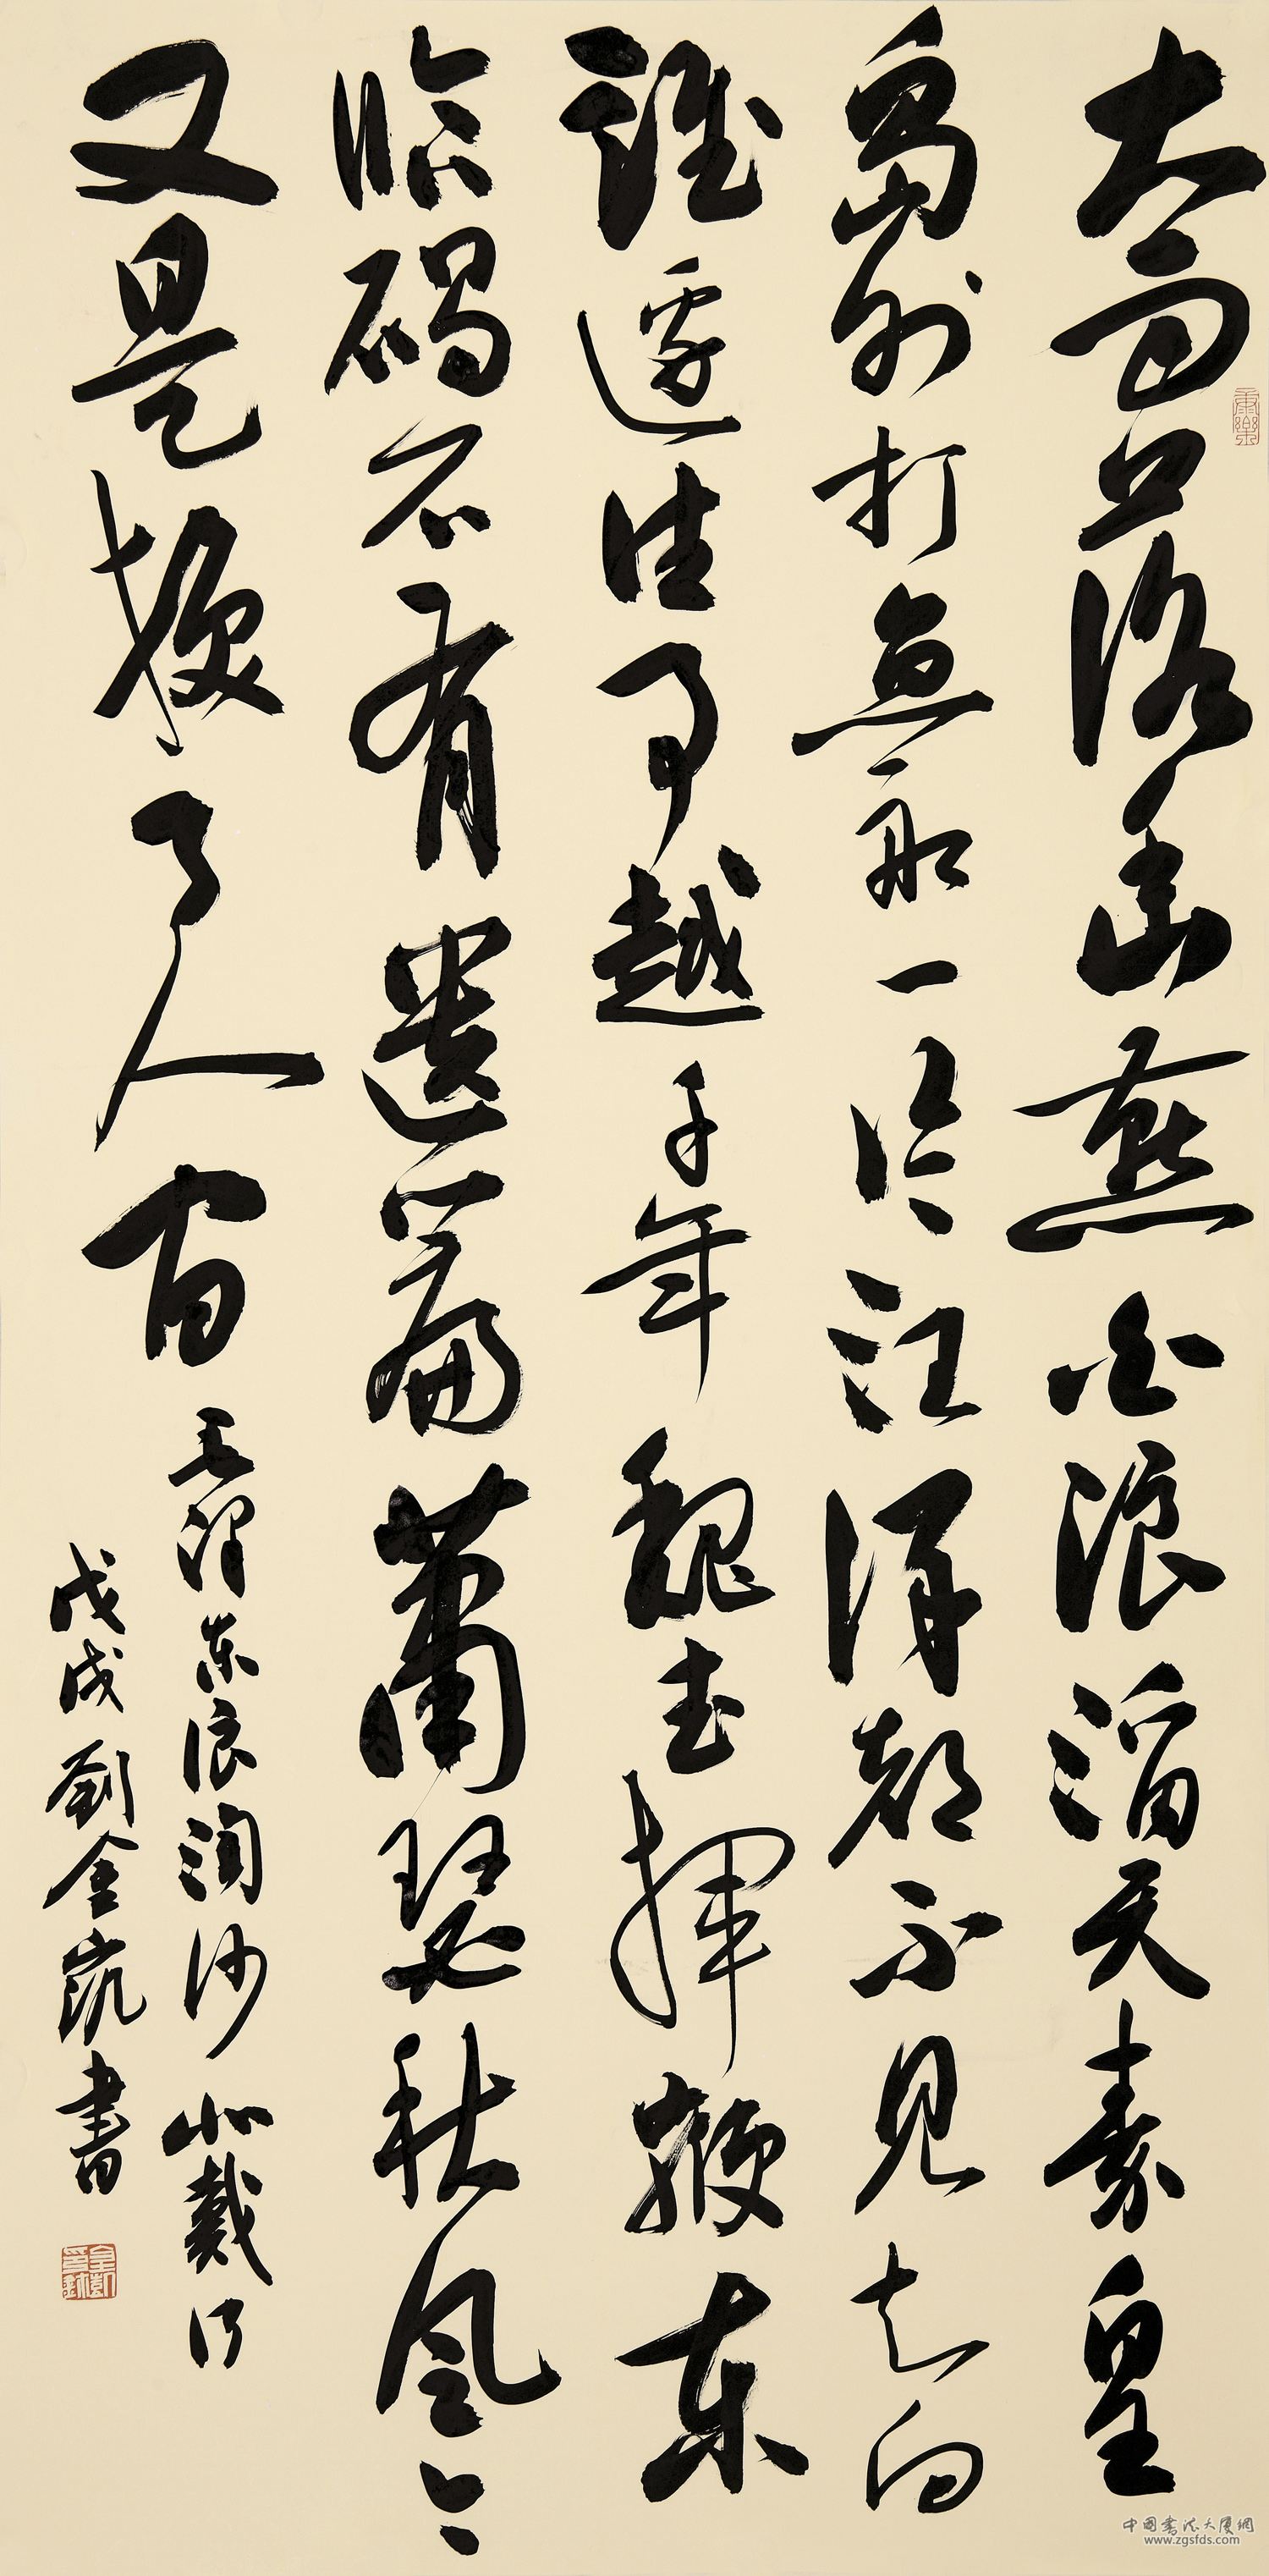 大雨落幽燕白浪滔天秦皇
島外打魚船一片汪洋都不見知向
誰邊往事越千年魏武揮鞭東
臨碣石有遺篇蕭瑟秋風今
又是換了人間
毛澤东浪淘沙北戴河
戊戌劉金凱書
康樂
中國書法大廈網
www.zgsfds.com